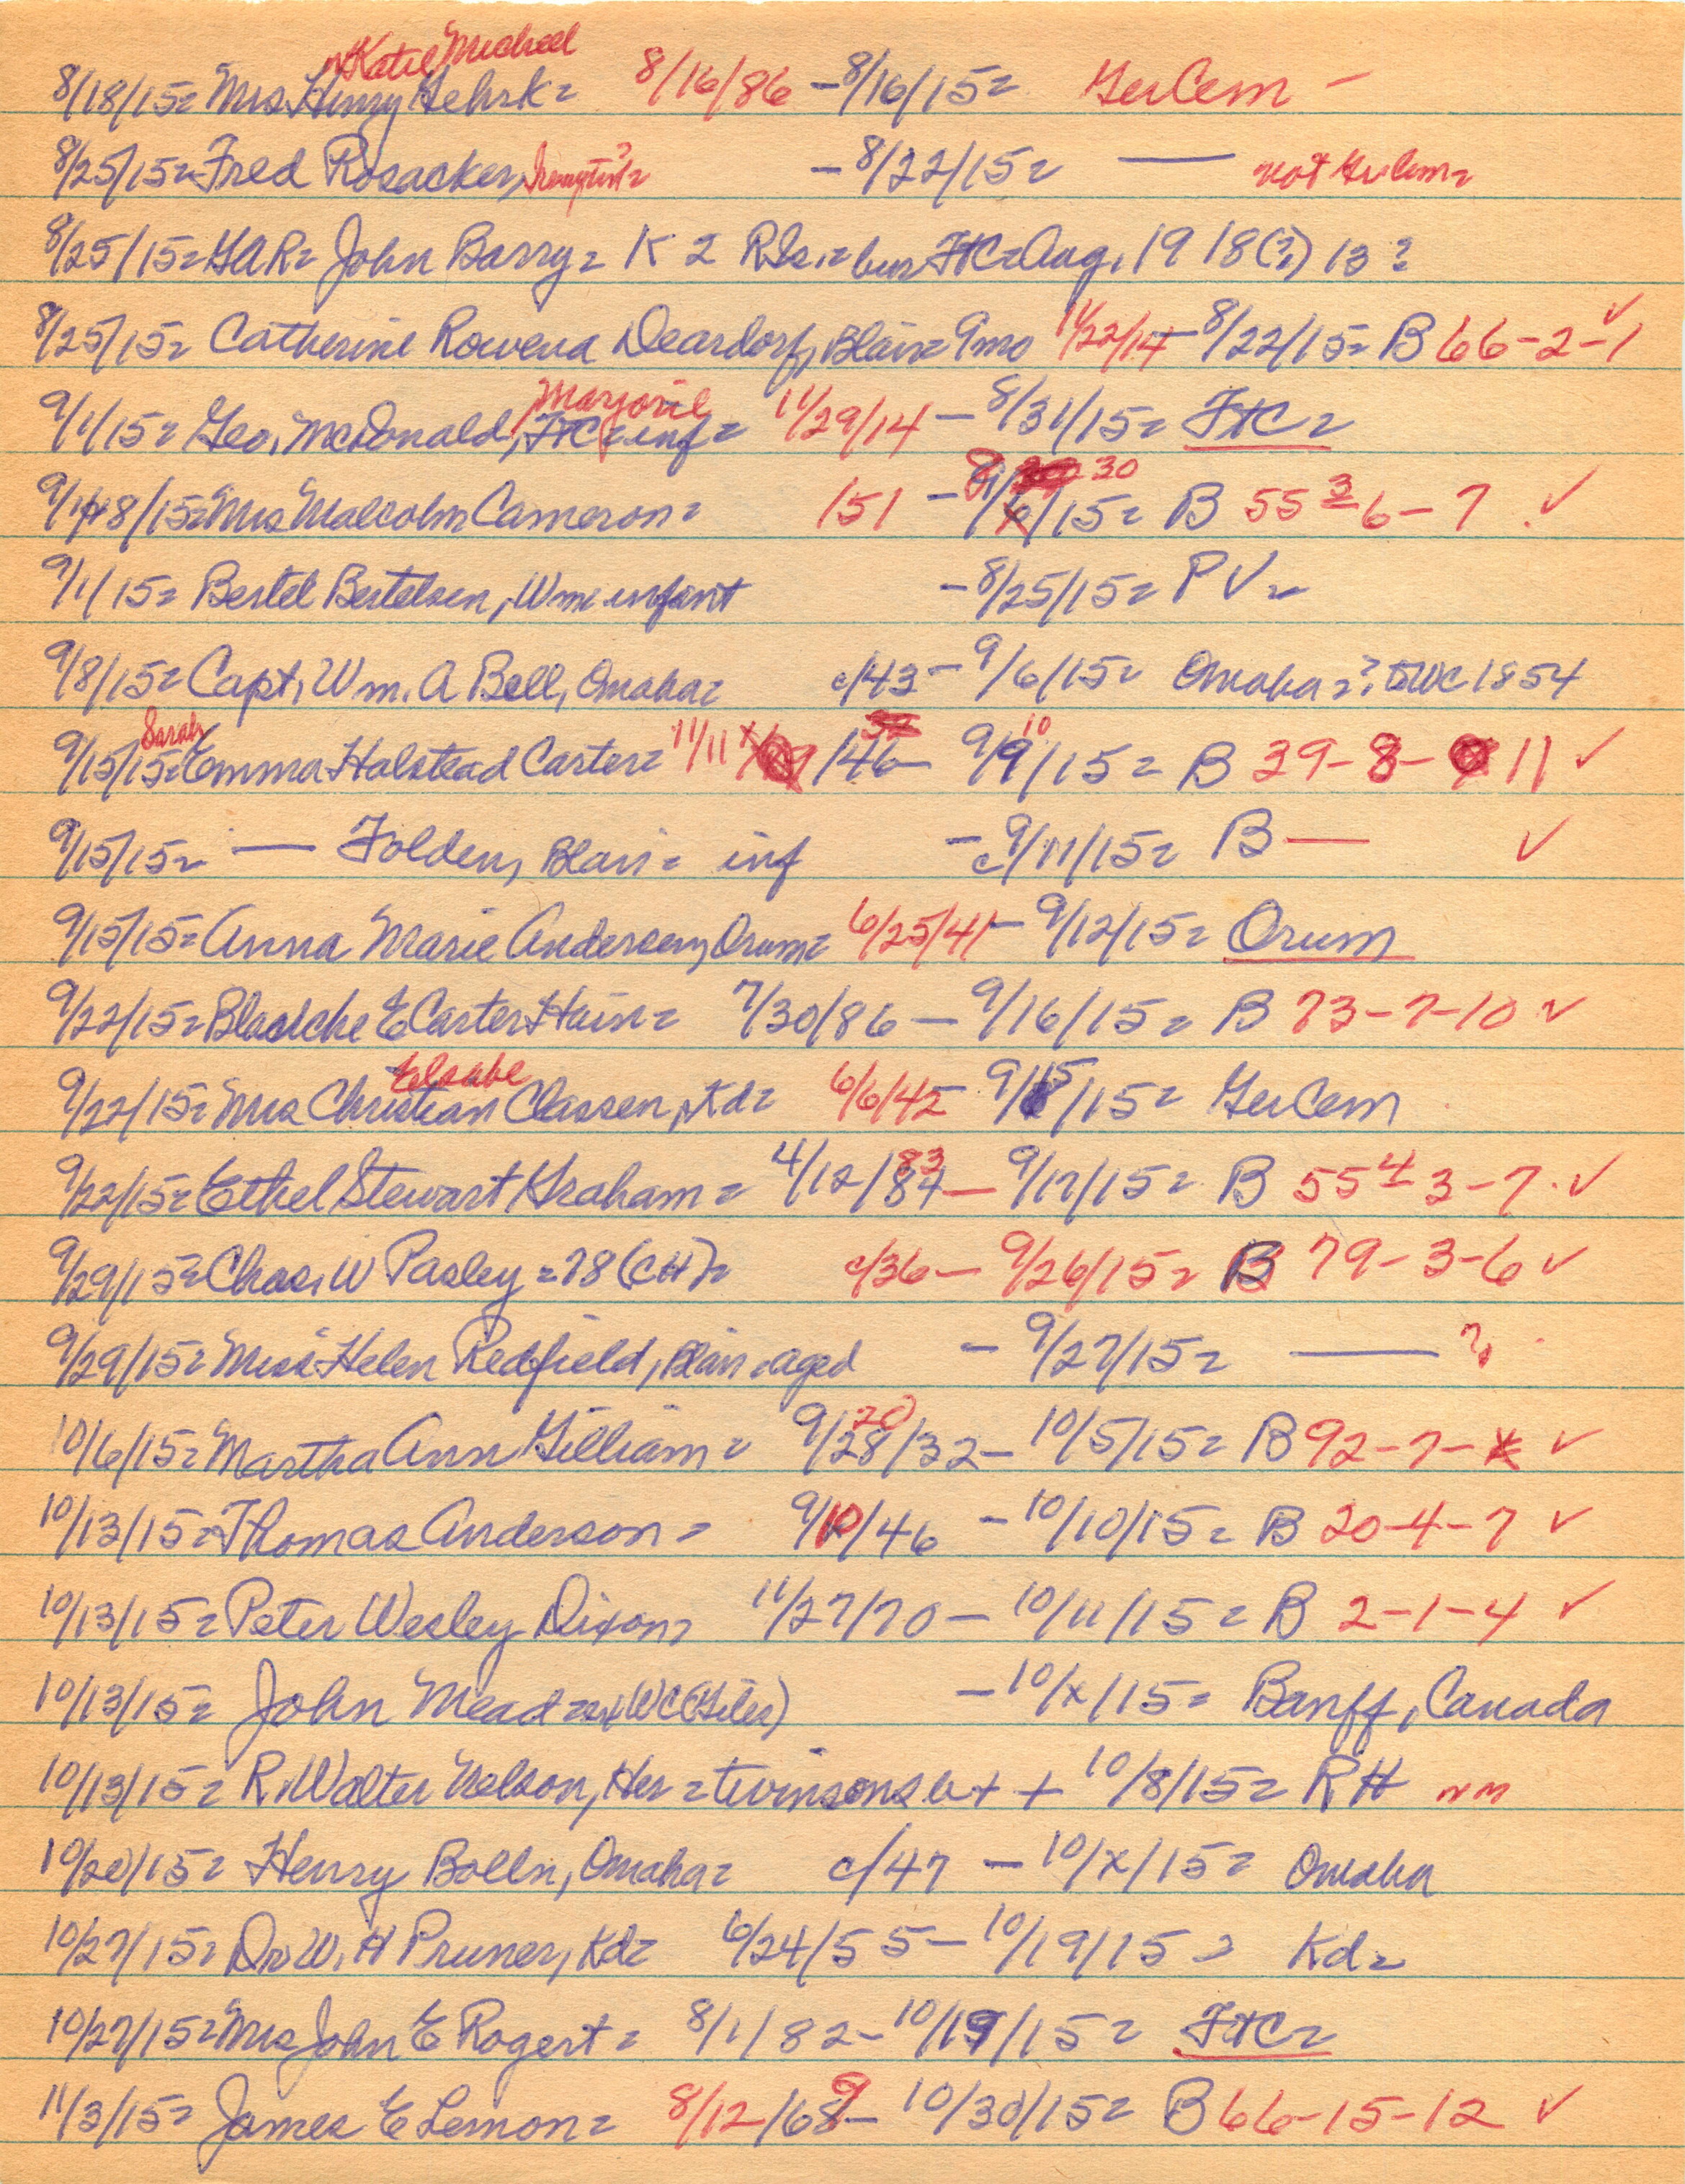 Katie Michael
8/18/15= Mrs Henry Gehrk= 8/16/86 - 8/16/15= GerCem -
8/25/15= Fred Rosacker, - 8/22/15= — not GerCem=
8/25/15= GAR= John Barry= K 2 RIs.= bur FtC= Aug. 1918(?) 13?
8/25/15= Catherine Rowena Deardorf, Blair= 9mo 11/22/14 - 8/22/15= B 66-2-1 ✓
Marjorie
9/1/15= Geo. McDonald, FtC= inf= 11/29/14 - 8/31/15= FtC=
9/1+8/15= Mrs Malcolm Cameron= /51 - 8/30/15= B 55 3 6-7 ✓
9/1/15= Bertel Bertelsen, Wm= infant - 8/25/15= PV=
9/8/15= Capt. Wm. A Bell, Omaha= c/43 - 9/6/15= Omaha=? 1854
Sarah 10
9/15/15= Emma Halstead Carter= 11/11/46 - 9/9/15= B 39-8-11 ✓
9/15/15= — Folden, Blair= inf - c9/11/15= B — ✓
9/15/15= Anna Marie Andersen, Orum= 6/25/41 - 9/12/15= Orum
9/22/15= Blanche E Carter Hain= 7/30/86 - 9/16/15= B 73-7-10 ✓
Elsabe
9/22/15= Mrs Christian Classen, Kd= 6/6/42 - 9/15/15= GerCem
83
9/22/15= Ethel Stewart Graham= 4/12/84 - 9/17/15= B 55 4 3-7 ✓
9/29/15= Chas. W Pasley = 78 (CH)= c/36 - 9/26/15= B 79-3-6 ✓
9/29/15= Miss Helen Redfield, Blair= aged - 9/27/15= — ?
20
10/6/15= Martha Ann Gilliam= 9/28/32 - 10/5/15= B 92-7-x ✓
10/13/15= Thomas Anderson= 9/10/46 - 10/10/15= B 20-4-7 ✓
10/13/15= Peter Wesley Dixon= 11/27/70 - 10/11/15= B 2-1-4 ✓
10/13/15= John Mead= WC (Giles) - 10/x/15= Banff, Canada
10/13/15= R. Walter Nelson, Her= twin sons b+ + 10/8/15= RH nm
10/20/15= Henry Bolln, Omaha= c/47 - 10/x/15= Omaha
10/27/15= Dr W. H Pruner, Kd= 6/24/55 - 10/19/15= Kd=
10/27/15= Mrs John E Rogert= 8/1/82 - 10/19/15= FtC=
9
11/3/15= James E Lemon= 8/12/68 - 10/30/15= B 66-15-12 ✓